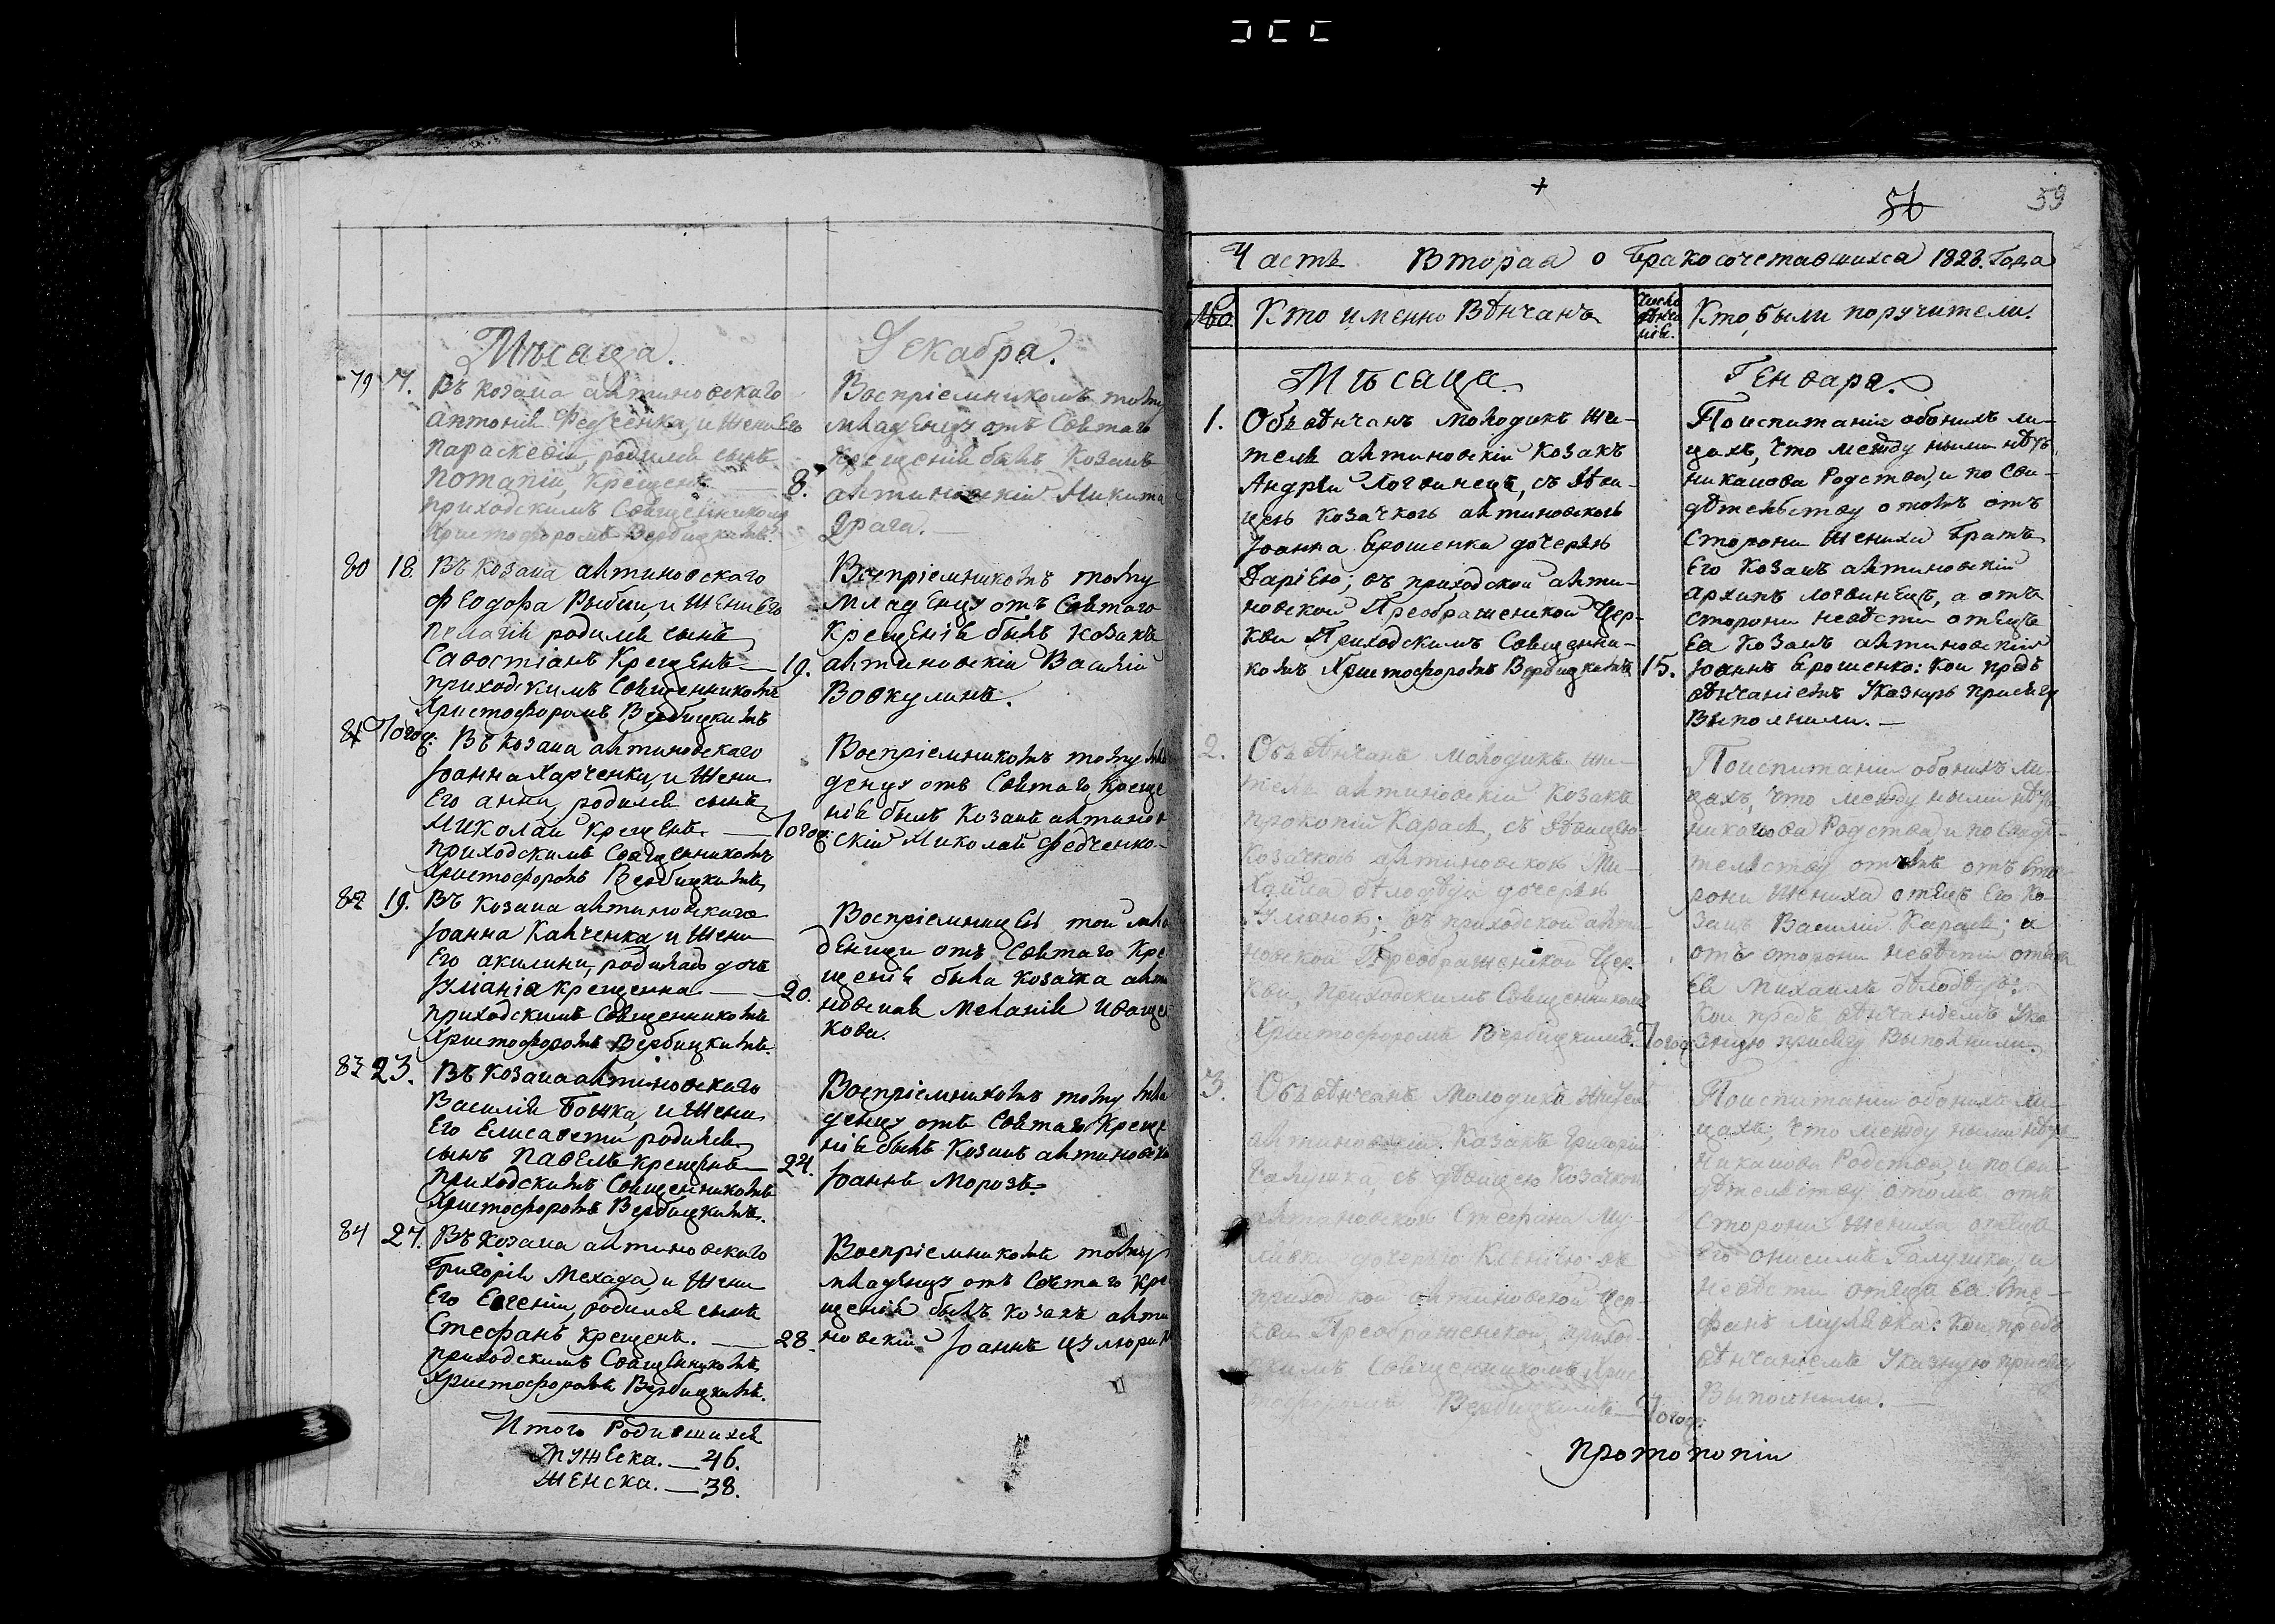 Мѣсяца. Декабря.
79 7. Въ козака яктиновского
Антонія Федченка, и жени Его
Параскевіи, родился сынъ
Потапій, крещенъ — 8.
приходскимъ Священникомъ
Христофоромъ Вербицкимъ.
Воспріемникомъ тому
младенцу отъ Святаго
крещенія былъ Козакъ
яктиновскій Микита
Драга. —
80 18. Въ козака яктиновского
Феодора Рыбки, и жени Его
Пелагіи родился сынъ
Савостіанъ крещенъ — 19.
приходскимъ Священникомъ
Христофоромъ Вербицкимъ
Воспріемникомъ тому
младенцу отъ Святаго
Крещенія былъ козакъ
яктиновскій Василій
Вовкулинъ.
81 Тогож. Въ козака яктиновского
Іоанна Харченка, и жени
Его Анни, родился сынъ
Миколай крещенъ. — Тогож
приходскимъ Священникомъ
Христофоромъ Вербицкимъ
Воспріемникомъ тому мла
денцу отъ Святаго Креще
нія былъ Козакъ яктинов
скій Миколай Федченко.
82 19. Въ козака яктиновского
Іоанна Капченка, и жени
Его Акилини, родилась дочь
Іуліанія крещенна. — 20.
приходскимъ Священникомъ
Христофоромъ Вербицкимъ.
Воспріемницею той мла
деници отъ Святаго Кре
щенія была козачка якти
новская Меланія Иваще
кова.
83 23. Въ козака яктиновского
Василія Божка, и жени
Его Елисавети родился
сынъ Павелъ крещенъ — 24.
приходскимъ Священникомъ
Христофоромъ Вербицкимъ.
Воспріемникомъ тому мла
денцу отъ Святаго Креще
нія былъ Козакъ яктиновскій
Іоаннъ Морозъ.
84 27. Въ козака яктиновского
Григорія Мехада, и жени
Его Евгеніи, родился сынъ
Стефанъ крещенъ. — 28.
приходскимъ Священникомъ
Христофоромъ Вербицкимъ.
Воспріемникомъ тому
младенцу отъ Святаго Кре
щенія былъ козакъ якти
новскій Іоаннъ
Итого Родившихся
Мужеска. — 46.
Женска. — 38.
56 59
Часть Вторая о бракосочетавшихся 1828. Года
№ Кто именно Вѣнчанъ Число вѣнча нія. Кто были поручители.
Мѣсяца Генваря.
1. Обвѣнчанъ молодикъ жи-
тель яктиновскій козакъ
Андрей Логвинецъ, съ дѣви-
цею козачкою яктиновскою
Іоанна Ерошенка дочерью
Даріею; въ приходской якти-
новской Преображенской Цер-
кви Приходскимъ Священни-
комъ Христофоромъ Вербицкимъ 15.
По испитаніи обоихъ ли-
цахъ, что между ними нѣтъ
никакова Родства, и по сви-
дѣтельству о томъ отъ
сторони жениха Братъ
Его Козакъ яктиновскій
Архипъ Логвинецъ, а отъ
сторони невѣсти отецъ
Ея Козакъ яктиновскій
Іоаннъ Ерошенко: кои предъ
вѣнчаніемъ Указную присягу
Выполнили. —
2. Обвѣнчанъ молодикъ жи-
тель яктиновскій козакъ
Прокопій Карась, съ дѣвицею
козачкою яктиновскою Ми-
хаила Бѣлодѣда дочерью
въ приходской якти-
новской Преображенской Цер-
кви, Приходскимъ Священникомъ
Христофоромъ Вербицкимъ. Тогож
По испитаніи обоихъ ли-
цахъ, что между ними нѣтъ
никакова Родства, и по свидѣ-
тельству о томъ отъ сто-
рони жениха отецъ Его Ко-
закъ Василій Карась; а
отъ сторони невѣсти отецъ
Ея Михаилъ Бѣлодѣдъ:
Кои предъ вѣнчаніемъ Ука
зную присягу Выполнили.
3. Обвѣнчанъ молодикъ житель
яктиновскій козакъ Григорій
Галушка съ дѣвицею козачкою
яктиновскою Стефана Му-
лявки дочерью въ
приходской яктиновской Цер-
кви Преображенской, приход-
скимъ Священникомъ Хрис-
тофоромъ Вербицкимъ — Тогож:
По испитаніи обоихъ ли-
цахъ, что между ними нѣтъ
никакова Родства, и по сви-
дѣтельству о томъ отъ
сторони жениха отецъ
Его Онисимъ Галушка, и
невѣсти отецъ Ея Сте-
фанъ Мулявка: Кои предъ
вѣнчаніемъ Указную присягу
Выполнили. —
Протопопіи